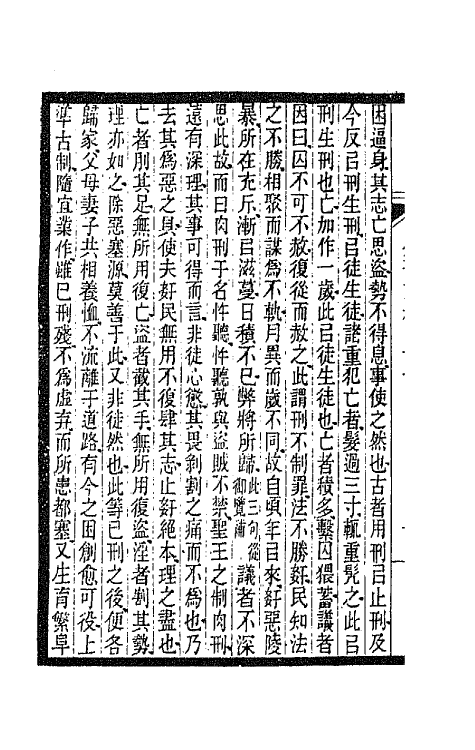 困逼身其志亡思盜勢不得息事使之然也古者用刑㠯止刑及
今反㠯刑生刑㠯徒生徒諸重犯亡者髮過三寸輒重髡之此㠯
刑生刑也亡加作一歲此㠯徒生徒也亡者積多繫囚猥蓄議者
因曰囚不可不赦復從而赦之此謂刑不制罪法不勝姧民知法
之不勝相聚而謀爲不軌月異而歲不同故自頃年㠯來奸惡陵
暴所在充斥漸㠯滋蔓日積不已弊將所歸此三句從御覽補議者不深
思此故而曰肉刑于名忤聽忤聽孰與盜賊不禁聖王之制肉刑
遠有深理其事可得而言非徒心懲其畏剝割之痛而不爲也乃
去其爲惡之具使夫奸民無用不復肆其志止姧絕本理之盡也
亡者刖其足無所用復亡盜者截其手無所用復盜淫者割其勢
理亦如之除惡塞源莫善于此又非徒然也此等已刑之後便各
歸家父母妻子共相養恤不流離于道路有今之困創愈可役上
準古制隨宜業作雖已刑殘不爲虛弃而所患都塞又生育繁阜